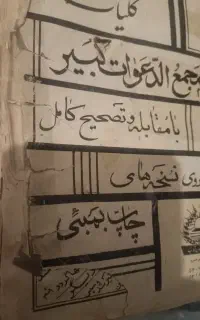 کلیات
مجمع الدعوات کبیر
با مقابله و تصحیح کامل
روی نسخه های
چاپ بمبئی